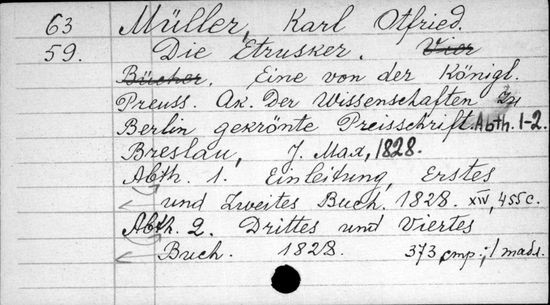 63 Müller, Karl Otfried.
59. Die Etrusker. Vier
Bücher. Eine von der Königl.
Preuss. Ak. Der Wissenschaften zu
Berlin gekrönte Preisschrift. Abth. 1-2.
Breslau, J. Max, 1828.
Abth. 1. Einleitung, Erstes
und Zweites Buch. 1828. XIV, 455 c.
Abth. 2. Drittes und Viertes
Buch. 1828. 373 cmp.; 1